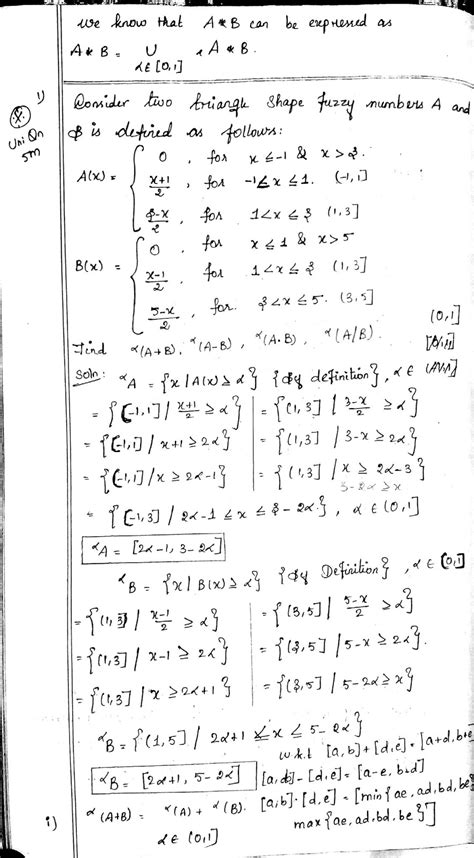 we know that A * B can be expressed as
A * B = ∪ α A * B.
α ∈ [0,1]
1)
Uni Qn
5m
Consider two triangle shape fuzzy numbers A and
B is defined as follows:
A(x) = { 0 , for x ≤ -1 & x > 3.
x+1/2 , for -1 < x ≤ 1. (-1,1]
3-x/2 , for 1 < x ≤ 3 (1,3]
B(x) = { 0 , for x ≤ 1 & x > 5
x-1/2 , for 1 < x ≤ 3 (1,3]
5-x/2 , for. 3 < x ≤ 5. (3,5]
(0,1]
Find α(A+B), α(A-B), α(A.B), α(A/B).
Soln: αA = {x / A(x) ≥ α} {By definition}, α ∈
= {(-1,1] / x+1/2 ≥ α} = {(1,3] / 3-x/2 ≥ α}
= {(-1,1] / x+1 ≥ 2α} = {(1,3] / 3-x ≥ 2α}
= {(-1,1] / x ≥ 2α-1} = {(1,3] / x ≥ 2α-3}
3-2α ≥ x
= {(-1,3] / 2α-1 ≤ x ≤ 3-2α}, α ∈ (0,1]
αA = [2α-1, 3-2α]
αB = {x / B(x) ≥ α} {By Definition}, α ∈ (0,1]
= {(1,3] / x-1/2 ≥ α} = {(3,5] / 5-x/2 ≥ α}
= {(1,3] / x-1 ≥ 2α} = {(3,5] / 5-x ≥ 2α}.
= {(1,3] / x ≥ 2α+1} = {(3,5] / 5-2α ≥ x}
αB = {(1,5] / 2α+1 ≤ x ≤ 5-2α}
w.k.t [a,b]+[d,e] = [a+d, b+e]
αB = [2α+1, 5-2α] [a,b]-[d,e] = [a-e, b-d]
[a,b]·[d,e] = [min{ae, ad, bd, be}
i) α(A+B) = α(A) + α(B). max{ae, ad, bd, be}]
α ∈ (0,1]